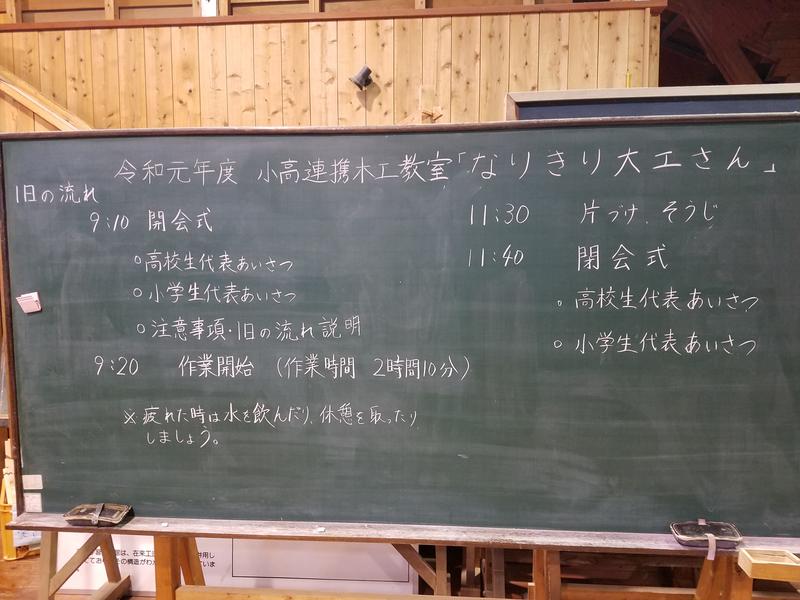 令和元年度 小高連携木工教室「なりきり大工さん」
1日の流れ
9:10 開会式
○高校生代表あいさつ
○小学生代表あいさつ
○注意事項・1日の流れ説明
9:20 作業開始 (作業時間 2時間10分)
※疲れた時は水を飲んだり、休憩を取ったり
しましょう。
11:30 片づけ、そうじ
11:40 閉会式
○高校生代表あいさつ
○小学生代表あいさつ